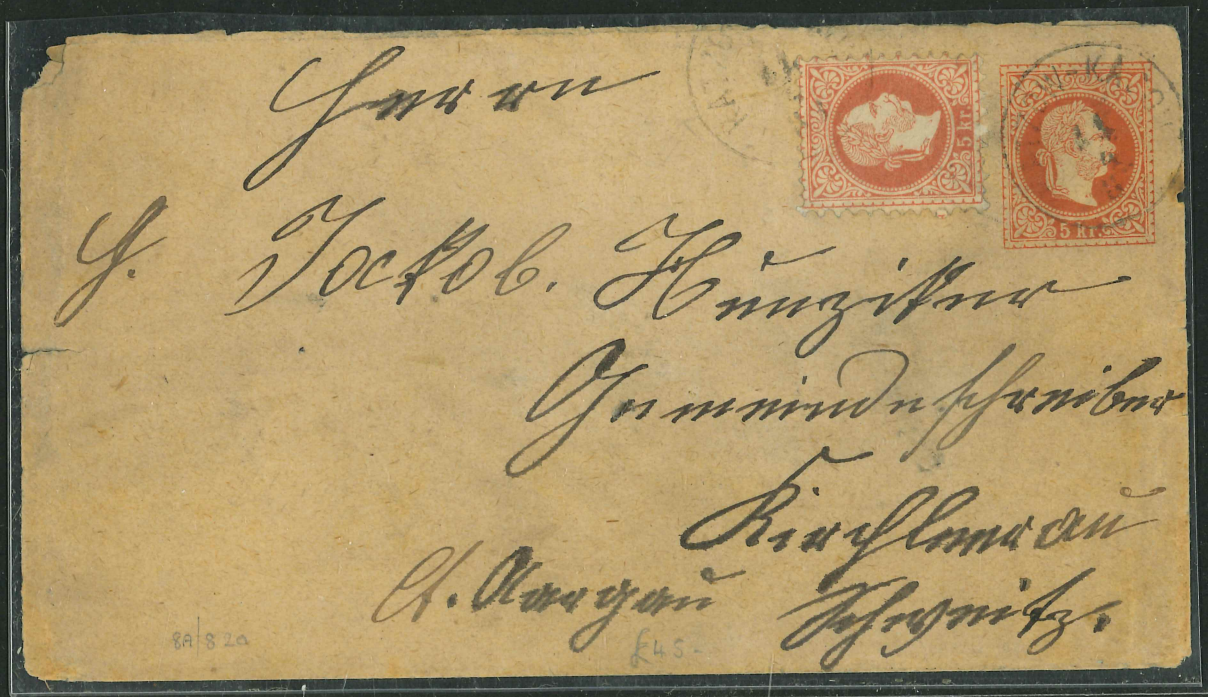 Herrn
H. Jackob. Hunziker
Gemeindeschreiber
Kirchleerau
Ct. Aargau Schweitz.
5 kr.
5 kr.
8A/8 20
£45-